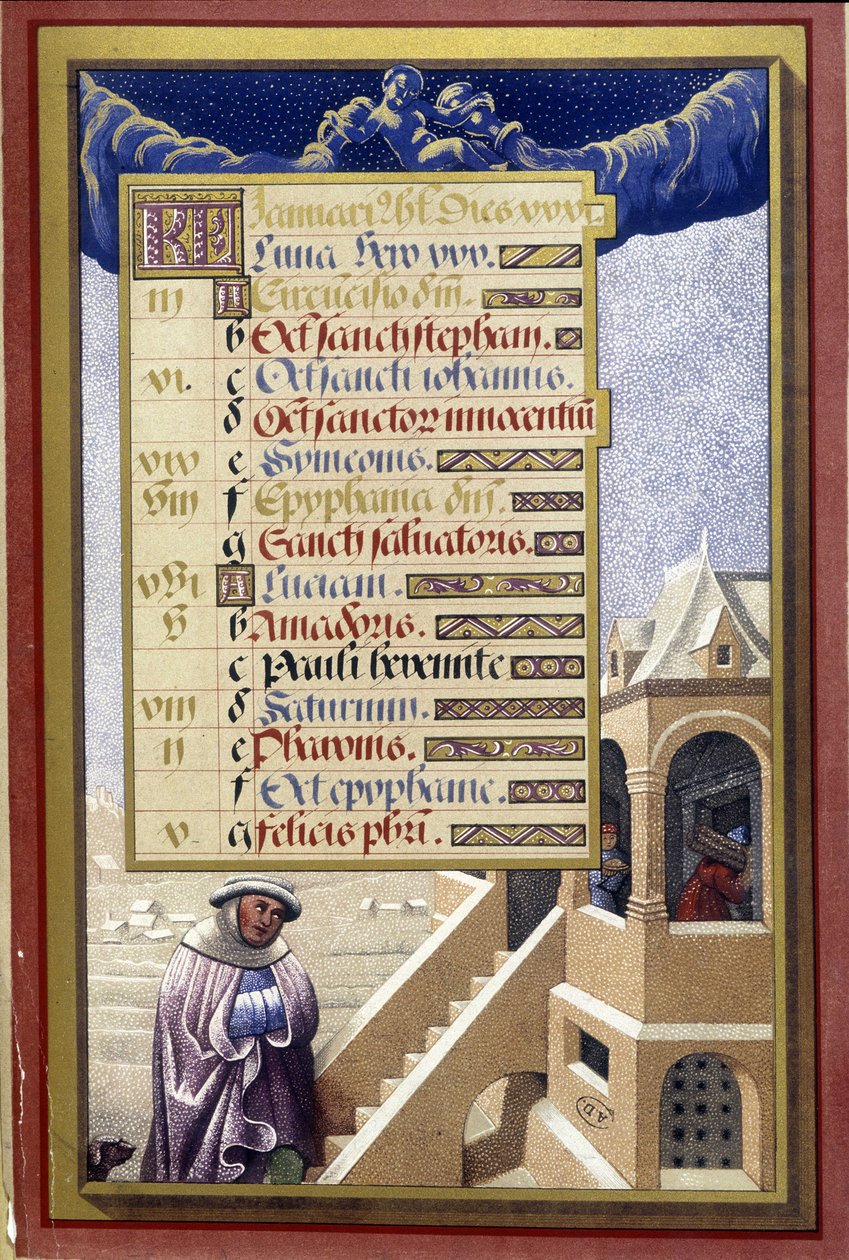 KL Januarius hȝ Dies xxxi.
Luna vero xxx.
iij A Circūcisio dñi.
b Oct̄ sancti stephani.
vi. c Oct̄ sancti iohannis.
d Oct̄ sanctoꝝ innocentiū
xix e Symeonis.
viij f Epyphania dñi.
g Sancti saluatoris.
xvi A Luciani.
v b Amadoris.
c Pauli heremite
xiij d Saturnini.
ij e
f Oct epyphanie.
x. g felicis pbr̄i.
A.D